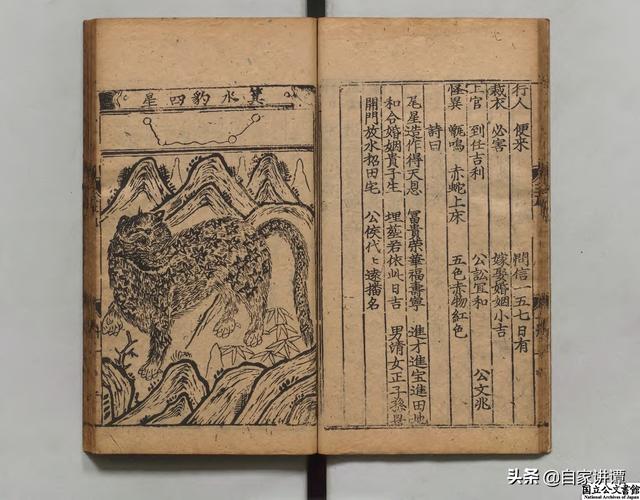 行人 便來 問信一五七日有
裁衣 必害 嫁娶婚姻小吉
上官 到任吉利 公訟宜和 公文兆
怪異 甑鳴 赤蛇上床 五色赤物紅色
詩曰
尾星造作得天恩 冨貴榮華福壽寧 進才進宝進田地
和合婚姻貴子生 埋葬若依此日吉 男清女正子孫
開門放水招田宅 公侯代〻遠播名
箕水豹四星
头条 @自家讲谭
国立公文書館
National Archives of Japan